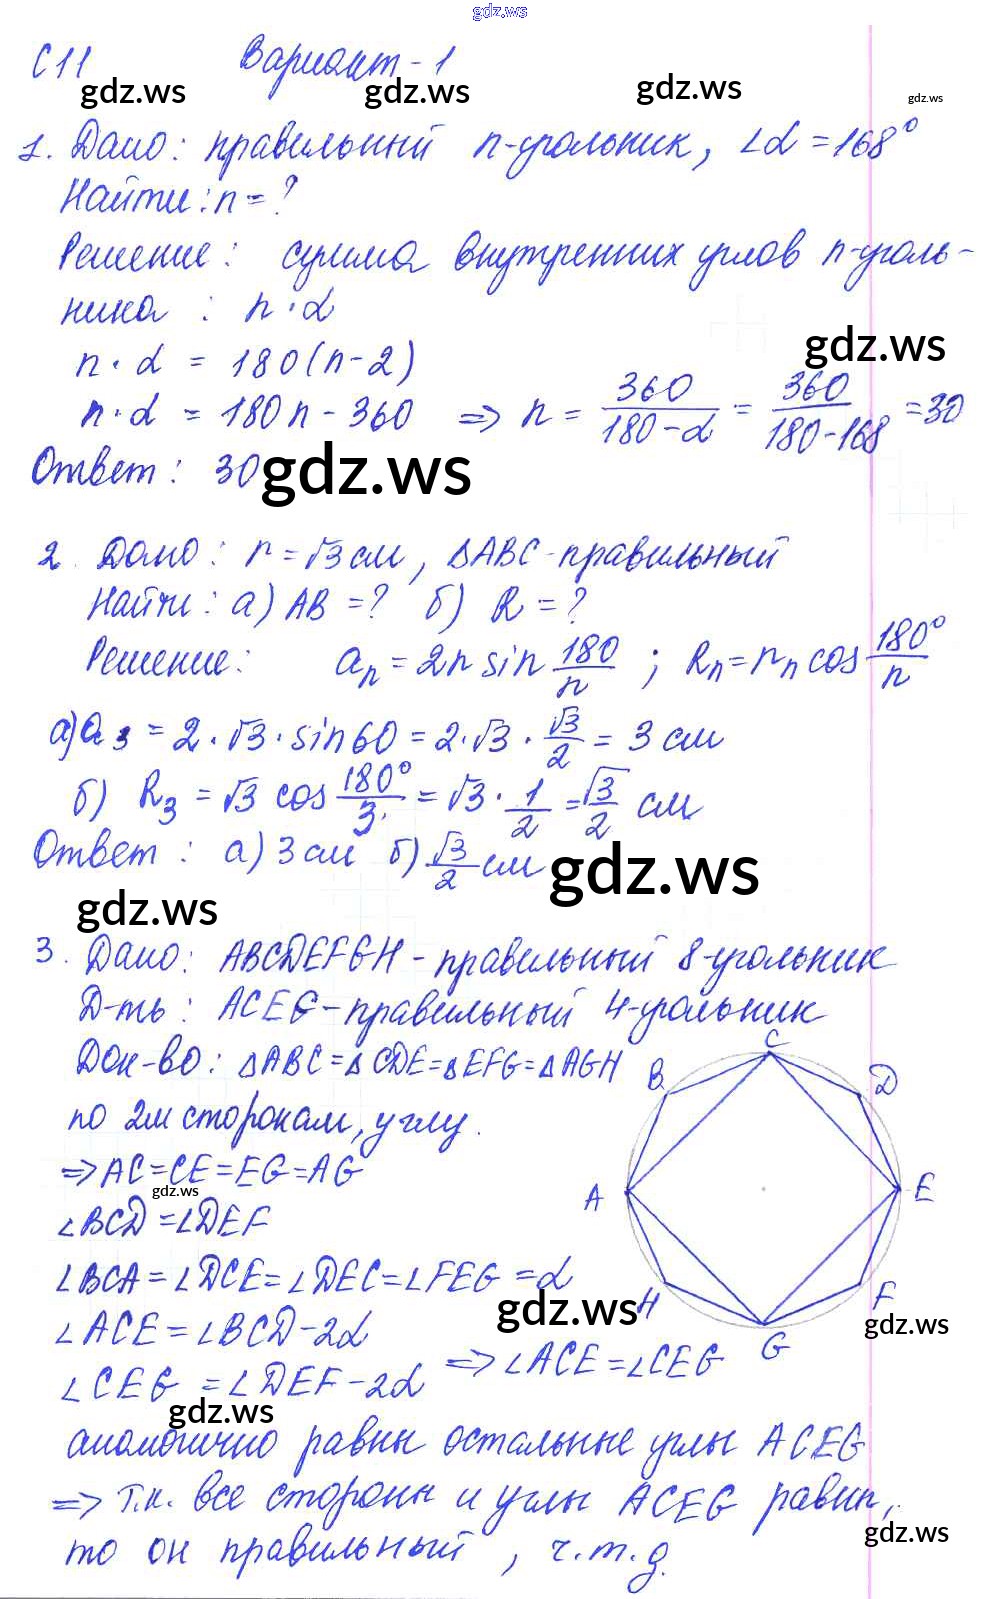 gdz.ws
С11 Вариант-1
gdz.ws gdz.ws gdz.ws gdz.ws
1. Дано: правильный n-угольник, ∠α = 168°
Найти: n = ?
Решение: сумма внутренних углов n-уголь-
ника : n · α
gdz.ws
n · α = 180(n-2)
n · α = 180n - 360 => n = 360/(180-α) = 360/(180-168) = 30
Ответ: 30
gdz.ws
2. Дано: r = √3 см, △ABC-правильный
Найти: а) AB = ? б) R = ?
Решение: aₙ = 2r sin 180/n ; Rₙ = rₙ cos 180°/n
а) a₃ = 2 · √3 · sin60 = 2 · √3 · √3/2 = 3 см
б) R₃ = √3 cos 180°/3 = √3 · 1/2 = √3/2 см
Ответ: а) 3 см б) √3/2 см
gdz.ws
gdz.ws
3. Дано: ABCDEFGH - правильный 8-угольник
Д-ть: ACEG - правильный 4-угольник
Док-во: △ABC = △CDE = △EFG = △AGH
по 2м сторонам, углу.
=> AC = CE = EG = AG
gdz.ws
∠BCD = ∠DEF
∠BCA = ∠DCE = ∠DEC = ∠FEG = α
gdz.ws
∠ACE = ∠BCD - 2α
∠CEG = ∠DEF - 2α => ∠ACE = ∠CEG
gdz.ws
аналогично равны остальные углы ACEG
=> т.к. все стороны и углы ACEG равны,
то он правильный, ч.т.д.
gdz.ws
C
B
D
A
E
H
F
G
gdz.ws